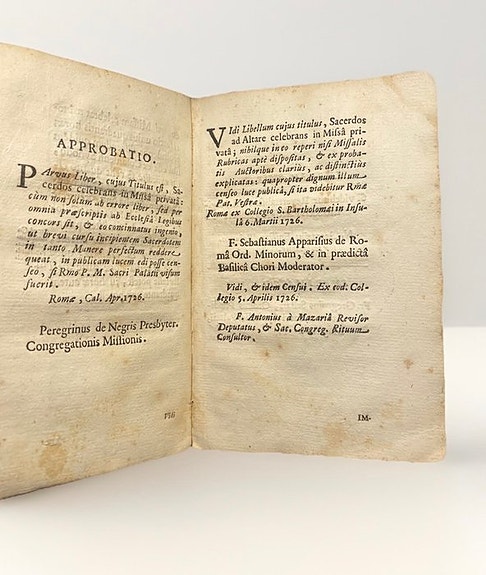 APPROBATIO.
PArvus Liber, cujus Titulus est, Sa-
cerdos celebrans in Missâ privatâ:
cùm non solùm ab errore liber, sed per
omnia præscriptis ab Ecclesiâ Legibus
concors sit, & eo concinnatus ingenio,
ut brevi cursu incipientem Sacerdotem
in tanto Munere perfectum reddere
queat, in publicam lucem edi posse cen-
seo, si Rmo P. M. Sacri Palatii visum
fuerit.
Romæ, Cal. Apr. 1726.
Peregrinus de Negris Presbyter.
Congregationis Missionis.
Vidi
VIdi Libellum cujus titulus, Sacerdos
ad Altare celebrans in Missâ pri-
vatâ; nihilque in eo reperi nisi Missalis
Rubricas aptè dispositas, & ex proba-
tis Auctoribus clariùs, ac distinctiùs
explicatas: quapropter dignum illum
censeo luce publicâ, si ita videbitur Rmæ
Pat. Vestræ.
Romæ ex Collegio S. Bartholomæi in Insu-
lâ 6. Martii 1726.
F. Sebastianus Apparisius de Ro-
mâ Ord. Minorum, & in prædictâ
Basilicâ Chori Moderator.
Vidi, & idem Censui. Ex eod. Col-
legio 5. Aprilis 1726.
F. Antonius à Mazariâ Revisor
Deputatus, & Sac. Congreg. Rituum
Consultor.
IM-